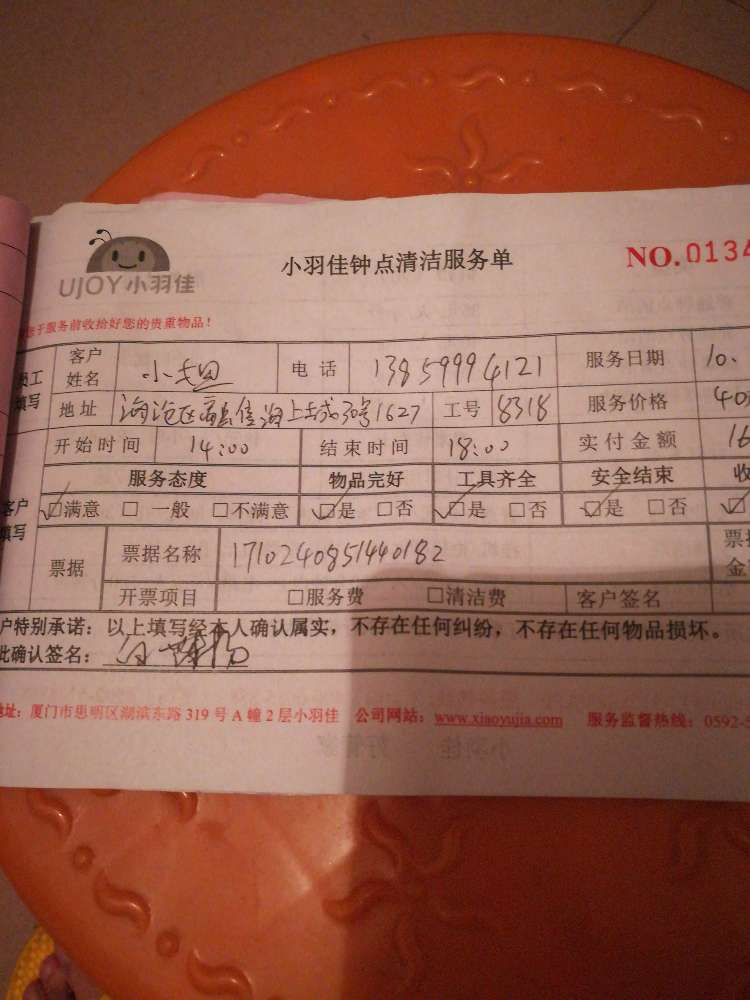 UJOY小羽佳
小羽佳钟点清洁服务单
NO.0134
于服务前收拾好您的贵重物品！
员工填写 客户姓名 小 电话 13859994121 服务日期 10.
地址 海沧区 海上城30号1627 工号 8318 服务价格 40
开始时间 14:00 结束时间 18:00 实付金额 16
服务态度 物品完好 工具齐全 安全结束 收
客户填写 满意 一般 不满意 是 否 是 否 是 否
票据 票据名称 1710240851440182 票据金额
开票项目 服务费 清洁费 客户签名
户特别承诺：以上填写经本人确认属实，不存在任何纠纷，不存在任何物品损坏。
此确认签名：
地址：厦门市思明区湖滨东路 319 号 A 幢 2 层小羽佳 公司网站：www.xiaoyujia.com 服务监督热线：0592-5